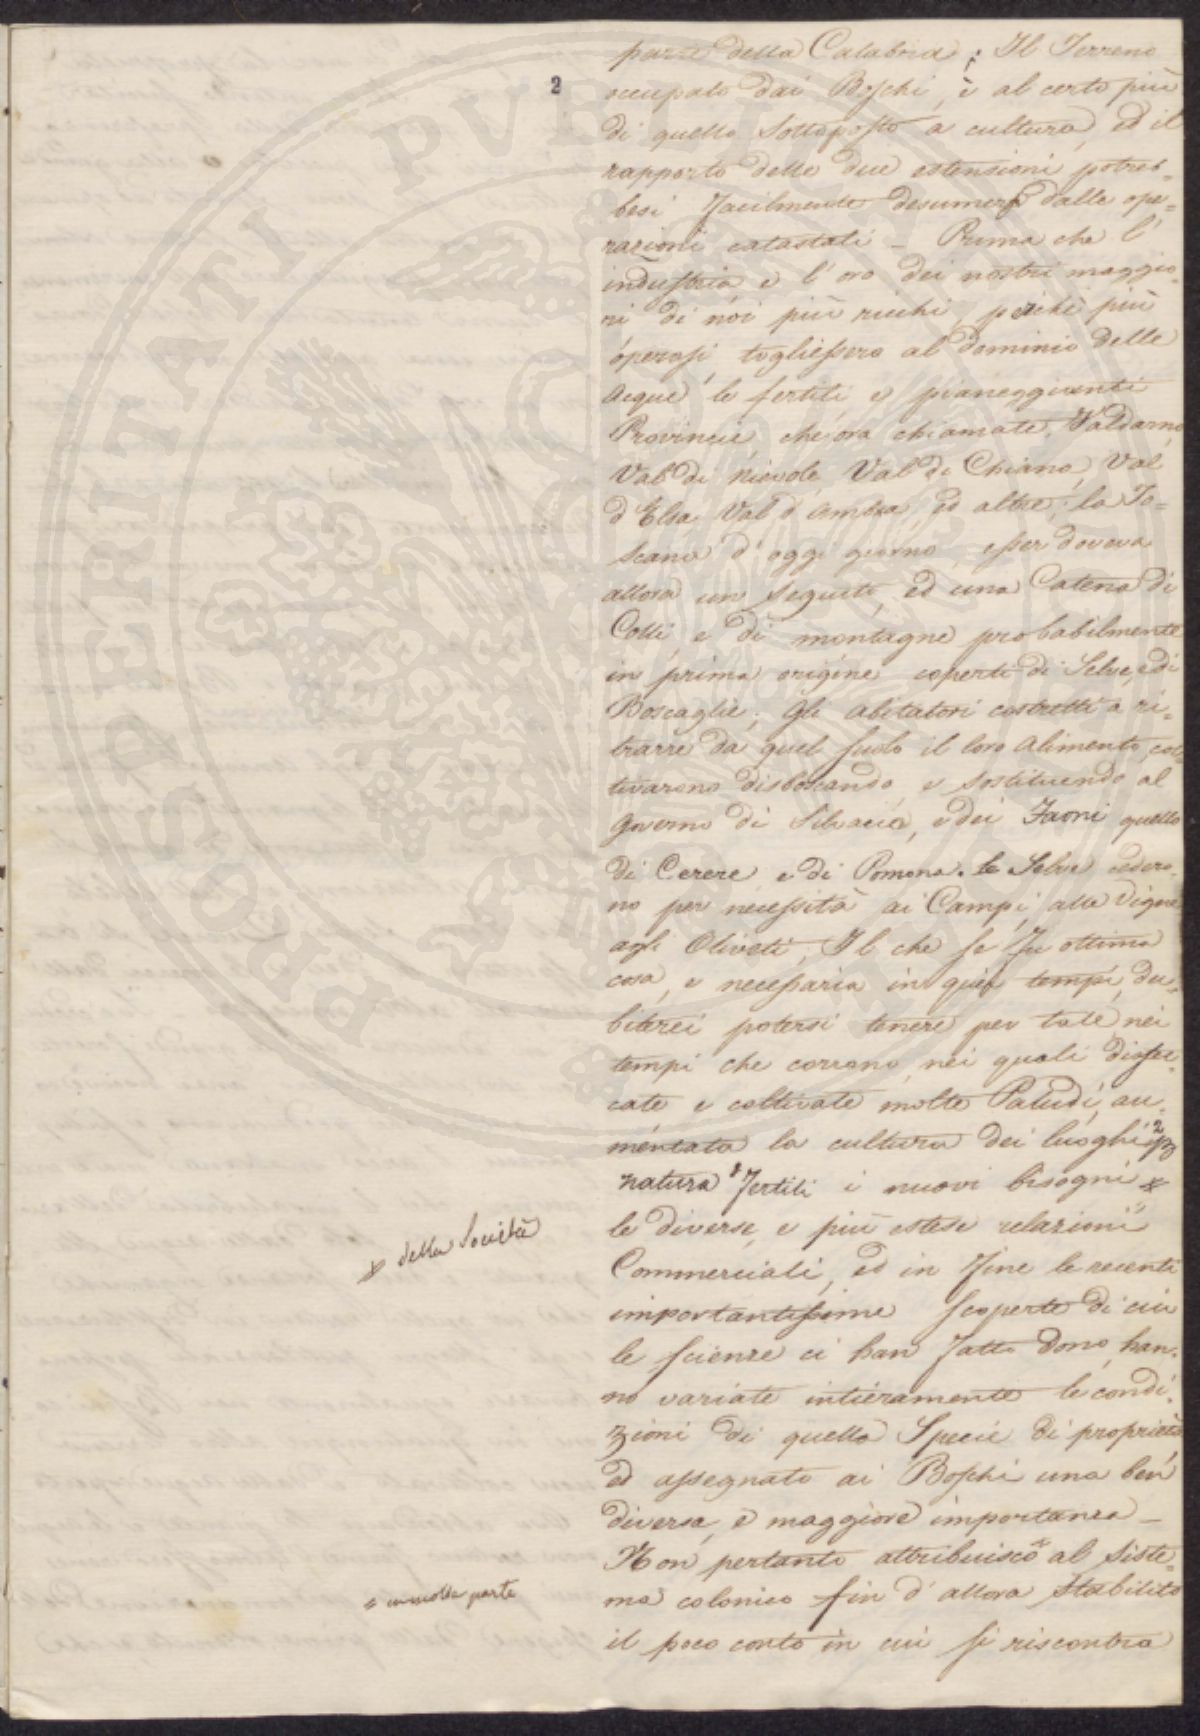 2
parte della Calabria; Il Terreno
occupato dai Boschi, è al certo più
di quello sottoposto a cultura, ed il
rapporto delle due estensioni potreb-
besi facilmente desumere dalle ope-
razioni catastali - Prima che l'
industria, e l'oro dei nostri maggio-
ri di noi più ricchi, perchè più
operosi, togliessero al dominio delle
Acque le fertili, e pianeggianti
Provincie, che ora chiamate, Valdarno
Val di Nievole, Val di Chiana, Val
d'Elsa Val d'ambra, ed altre; la To-
scana d'oggi giorno, esser doveva
allora un seguito, ed una Catena di
Colli, e di montagne probabilmente
in prima origine coperti di Selve, e di
Boscaglie; Gli abitatori costretti a ri-
trarre da quel suolo il loro alimento, col-
tivarono disboscando, e sostituendo al
governo di Silvacio, e dei Fauni quello
di Cerere, e di Pomona. le Selve cedero-
no per necessità ai Campi, alle Vigne
agli Oliveti; Il che se fu ottima
cosa, e necessaria in quei tempi, du-
biterei potersi tenere per tale nei
tempi che corrono, nei quali dissec-
cate e coltivate molte Paludi, au-
mentata la cultura dei luoghi p
natura fertili i nuovi bisogni
le diverse, e più estese relazioni
Commerciali, ed in fine le recenti
importantissime scoperte di cui
le scienze ci han fatto dono, han-
no variate intieramente le condi-
zioni di quella Specie di proprietà
ed assegnato ai Boschi una ben
diversa, e maggiore importanza -
Non pertanto attribuisco al siste-
ma colonico fin d'allora stabilito
il poco conto in cui si riscontra
della Società
in molta parte
PROSPERITATI PVBLICAE